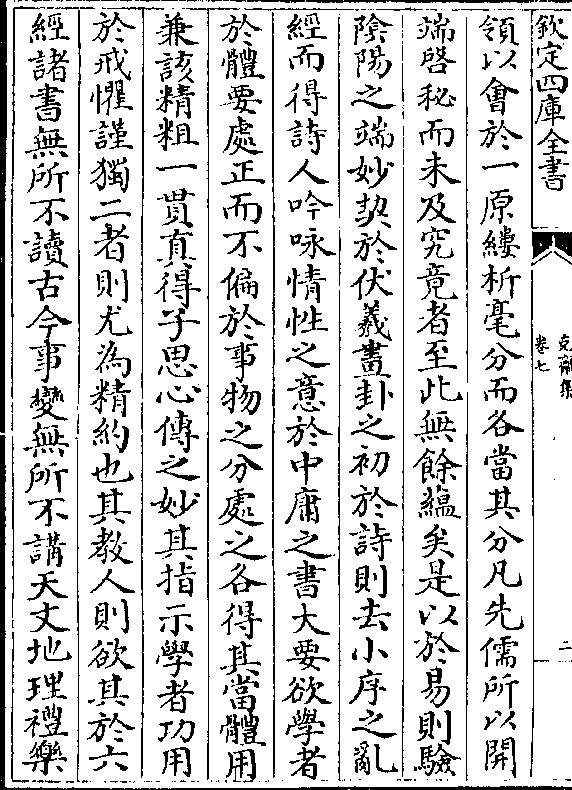 欽定四庫全書
克齋集
卷七
二
領以會於一原縷析毫分而各當其分凡先儒所以開
端啓秘而未及究竟者至此無餘蘊矣是以於易則驗
陰陽之端妙契於伏羲畫卦之初於詩則去小序之亂
經而得詩人吟咏情性之意於中庸之書大要欲學者
於體要處正而不偏於事物之分處之各得其當體用
兼該精粗一貫真得子思心傳之妙其指示學者功用
於戒懼謹獨二者則尤為精約也其教人則欲其於六
經諸書無所不讀古今事變無所不講天文地理禮樂